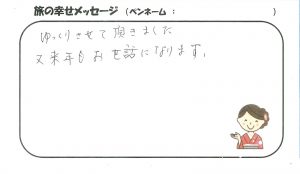 旅の幸せメッセージ （ペンネーム ： ）
ゆっくりさせて頂きました
又来年もお世話になります。